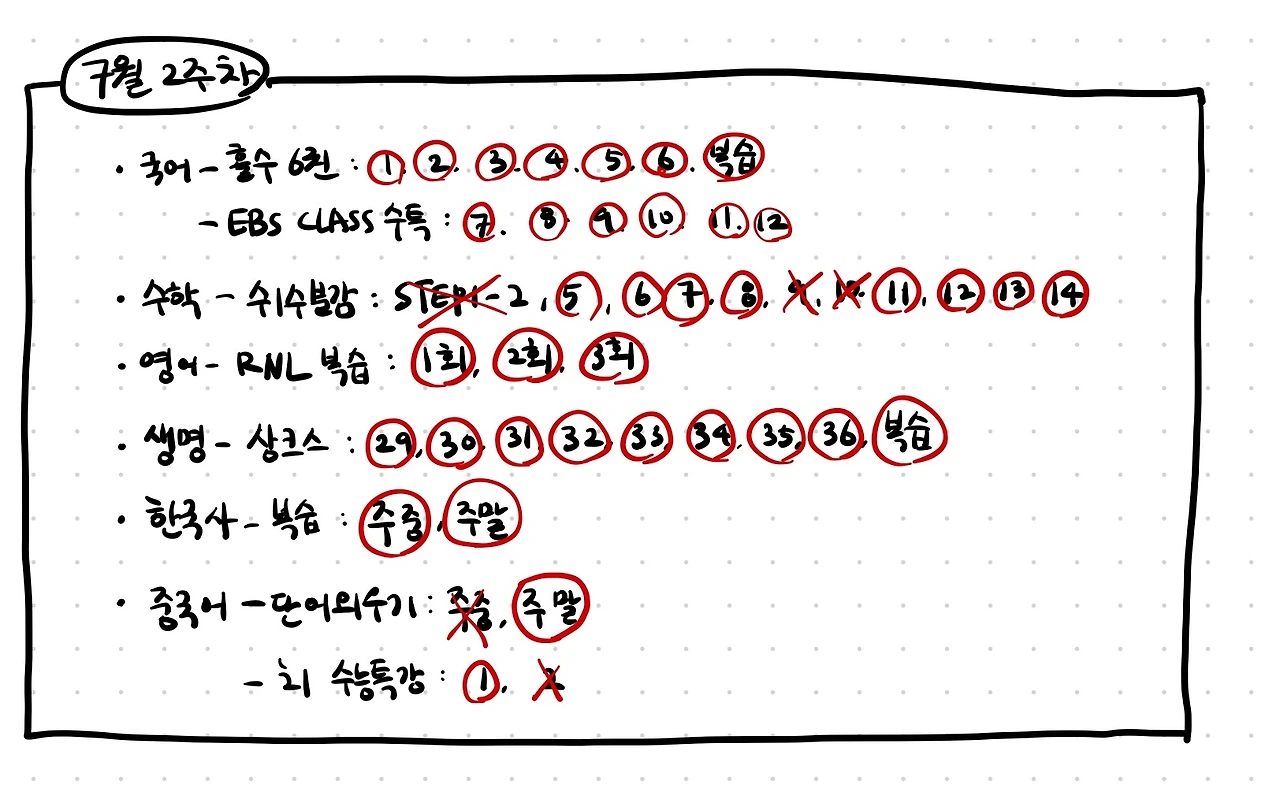 7월 2주차
· 국어 - 흡수 6권 : 1, 2, 3, 4, 5, 6, 복습
- EBS CLASS 수특 : 7, 8, 9, 10, 11, 12
· 수학 - 수1수분감 : STEP1-2, 5, 6, 7, 8, 9, 10, 11, 12, 13, 14
· 영어 - RNL 복습 : 1회, 2회, 3회
· 생명 - 상크스 : 29, 30, 31, 32, 33, 34, 35, 36, 복습
· 한국사 - 복습 : 주중, 주말
· 중국어 - 단어외우기 : 주중, 주말
- 수능특강 : 1, 2